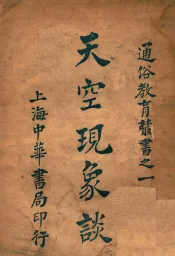 通俗教育叢書之一
天空現象談
上海中華書局印行